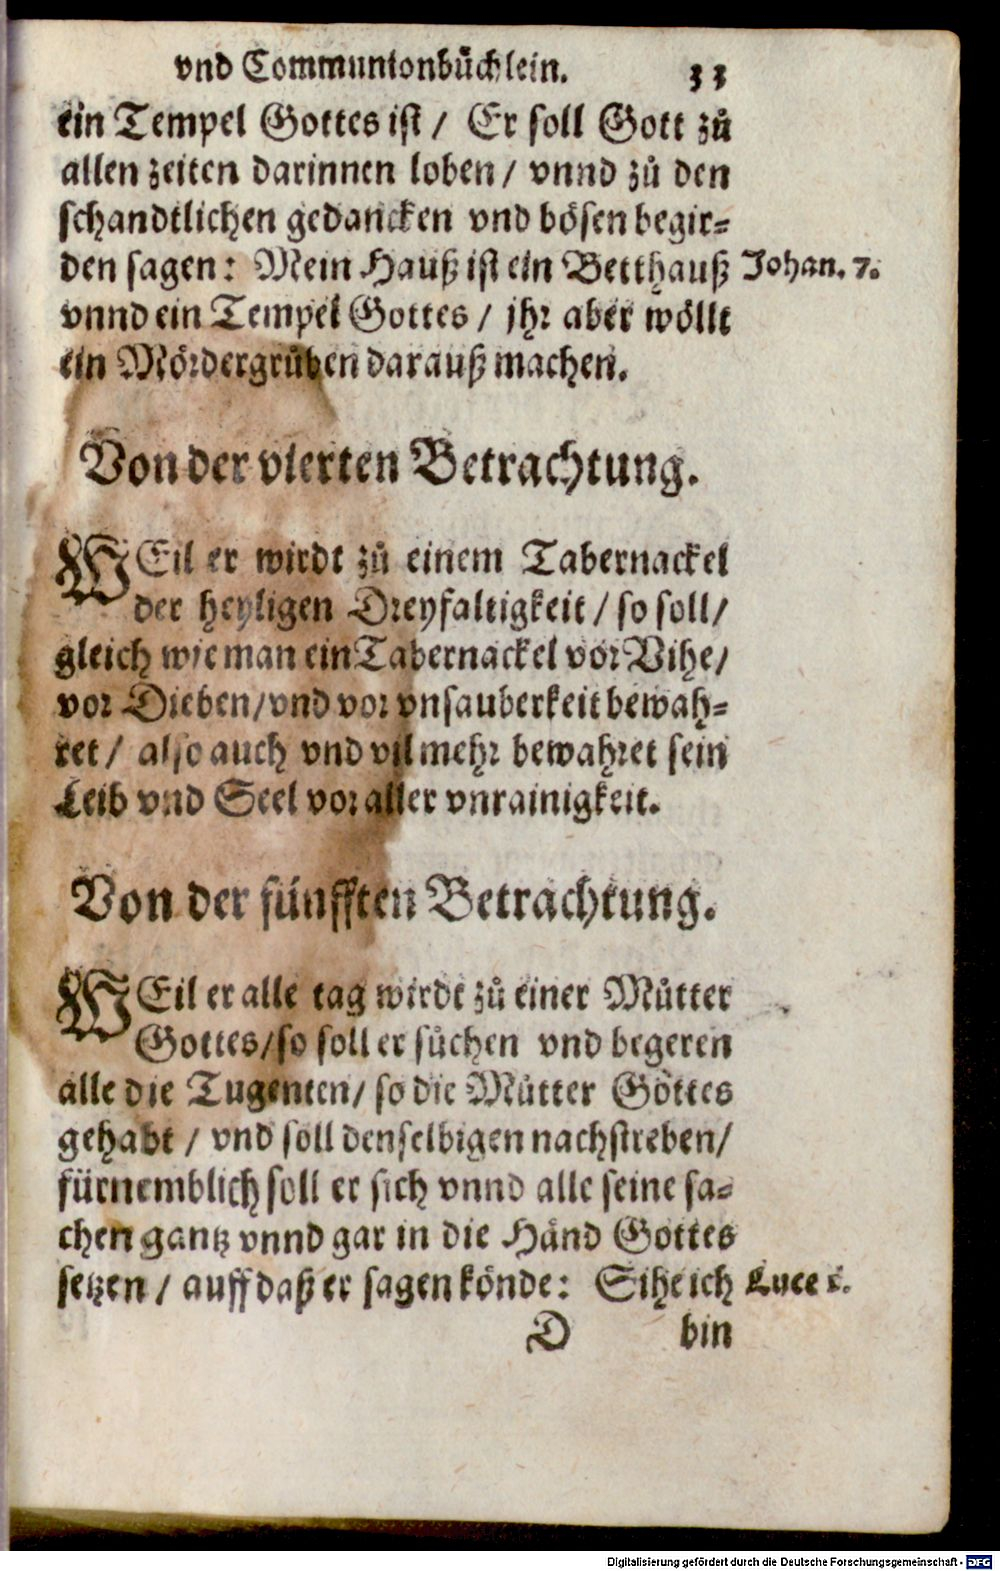 vnd Communionbüchlein. 33
ein Tempel Gottes ist / Er soll Gott zů
allen zeiten darinnen loben / vnnd zů den
schandtlichen gedancken vnd bösen begir⸗
den sagen: Mein Hauß ist ein Betthauß Johan. 7.
vnnd ein Tempel Gottes / jhr aber wöllt
ein Mördergrůben darauß machen.
Von der vierten Betrachtung.
WEil er wirdt zů einem Tabernackel
der heyligen Dreyfaltigkeit / so soll /
gleich wie man ein Tabernackel vor Vihe /
vor Dieben / vnd vor vnsauberkeit bewah⸗
ret / also auch vnd vil mehr bewahret sein
Leib vnd Seel vor aller vnrainigkeit.
Von der fünfften Betrachtung.
WEil er alle tag wirdt zů einer Můtter
Gottes / so soll er sůchen vnd begeren
alle die Tugenten / so die Můtter Göttes
gehabt / vnd soll denselbigen nachstreben /
fürnemblich soll er sich vnnd alle seine sa⸗
chen gantz vnnd gar in die Händ Gottes
setzen / auff daß er sagen könde: Sihe ich Luce 1.
D bin
Digitalisierung gefördert durch die Deutsche Forschungsgemeinschaft - DFG